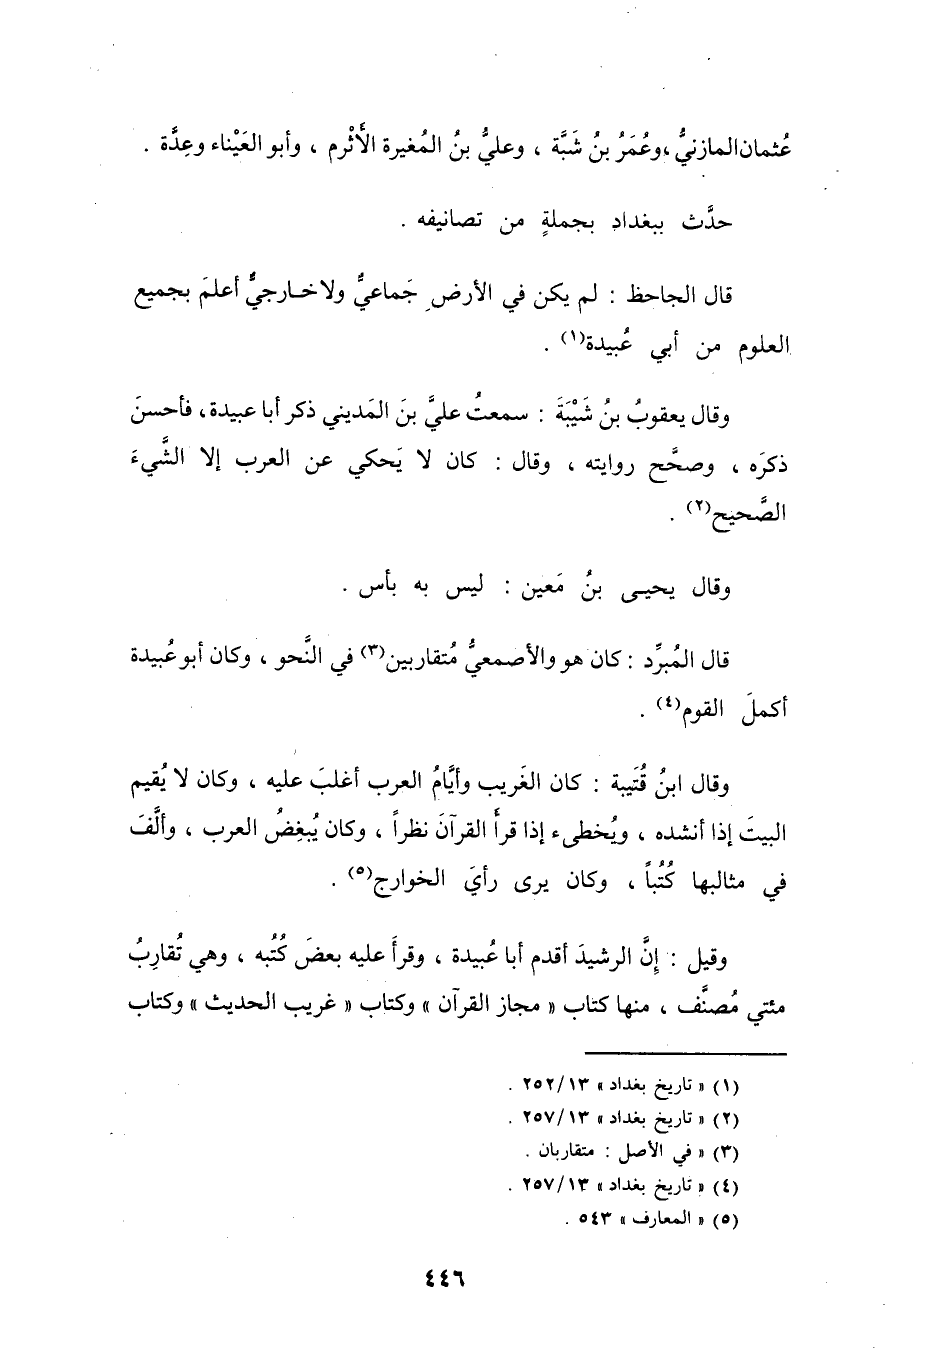 عُثمان المازنيُّ ، وعُمَرُ بنُ شَبَّة ، وعليُّ بنُ المُغيرة الأَثْرم ، وأبو العَيْناء وعِدَّة .
حدَّث ببغداد بجملةٍ من تصانيفه .
قال الجاحظ : لم يكن في الأرض جَماعيٌّ ولا خارجيٌّ أعلمَ بجميع
العلوم من أبي عُبيدة(١) .
وقال يعقوبُ بنُ شَيْبَةَ : سمعتُ عليَّ بنَ المَديني ذكر أبا عبيدة، فأحسنَ
ذكرَه ، وصحَّح روايته ، وقال : كان لا يَحكي عن العرب إلا الشَّيءَ
الصَّحيح(٢) .
وقال يحيى بنُ مَعين : ليس به بأس .
قال المُبرِّد : كان هو والأصمعيُّ مُتقاربين(٣) في النَّحو ، وكان أبو عُبيدة
أكملَ القوم(٤) .
وقال ابنُ قُتَيبة : كان الغَريب وأيَّامُ العرب أغلبَ عليه ، وكان لا يُقيم
البيتَ إذا أنشده ، ويُخطىء إذا قرأَ القرآنَ نظراً ، وكان يُبغِضُ العرب ، وألَّفَ
في مثالبها كُتُباً ، وكان يرى رأيَ الخوارج(٥) .
وقيل : إنَّ الرشيدَ أقدم أبا عُبيدة ، وقرأَ عليه بعضَ كُتُبه ، وهي تُقارِبُ
مئتي مُصنَّف ، منها كتاب « مجاز القرآن » وكتاب « غريب الحديث » وكتاب
(١) « تاريخ بغداد » ٢٥٢/١٣ .
(٢) « تاريخ بغداد » ٢٥٧/١٣ .
(٣) « في الأصل : متقاربان .
(٤) « تاريخ بغداد » ٢٥٧/١٣ .
(٥) « المعارف » ٥٤٣ .
٤٤٦